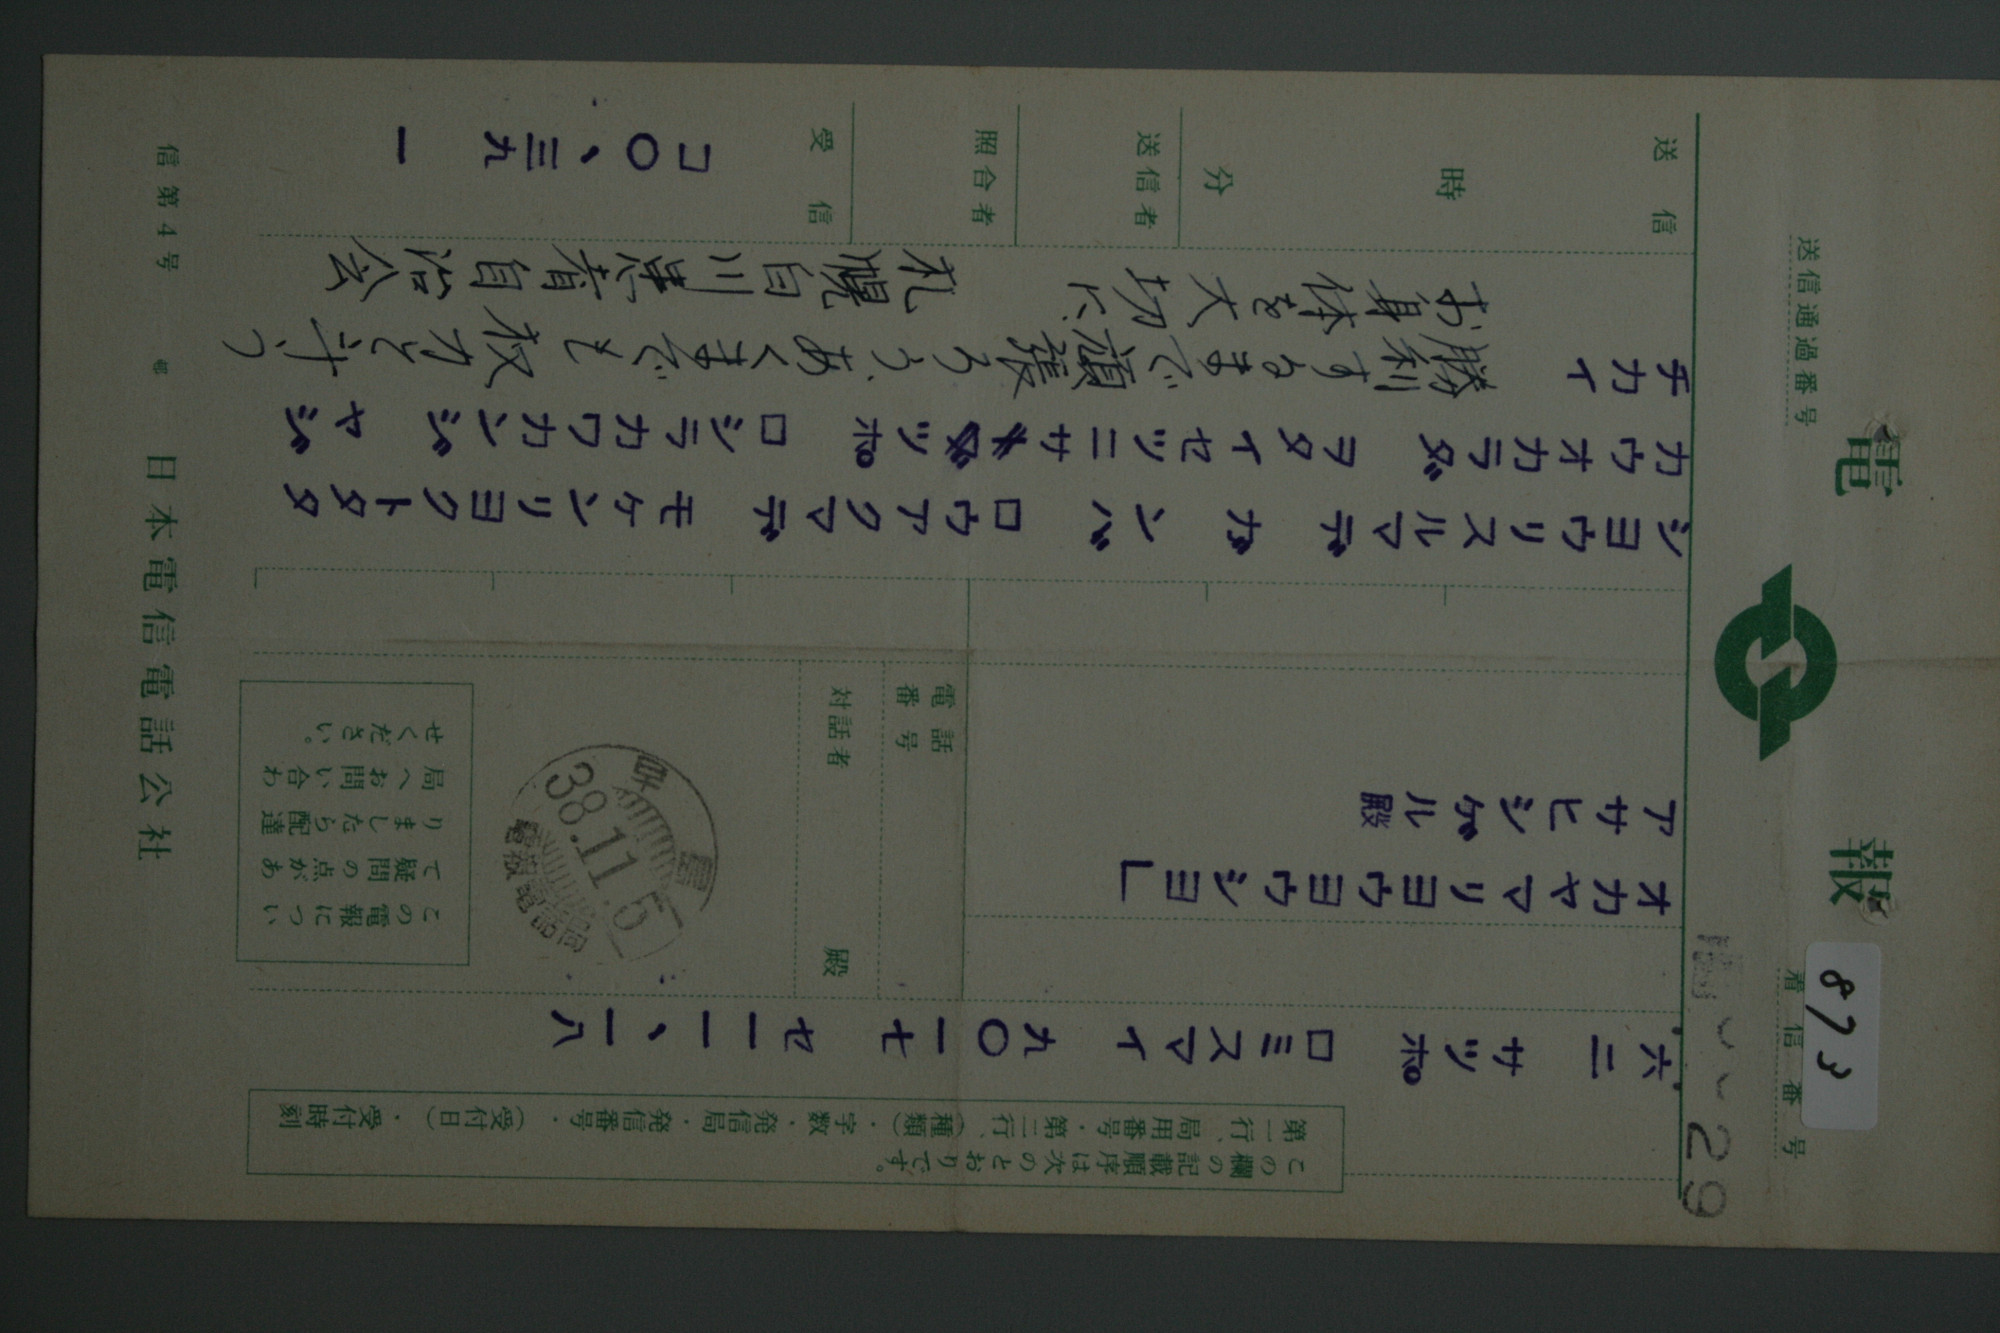 電報
着信番号
873
29
送信通過番号
この欄の記載順序は次のとおりです。
第一行、局用番号・第二行、(種類)・字数・発信局・発信番号・(受付日)・受付時刻
六二 サツポロミスマイ 九〇一七 セ一一、一八
オカヤマリヨウヨウシヨ」
アサヒシゲル殿
電話番号
対話者 殿
早島
38.11.6
この電報につい
て疑問の点があ
りましたら配達
局へお問い合わ
せください。
シヨウリスルマデ ガンバロウアクマデ モケンリヨクトタタ
カウオカラダ ヲタイセツニサツポロシラカワカンジヤジ
チカイ
勝利するまで頑張ろう、あくまでも权力と斗う
お身体を大切に、 札幌白川患者自治会
送信
時
分
送信者
照合者
受信
コ〇、三九 一
信第4号
日本電信電話公社